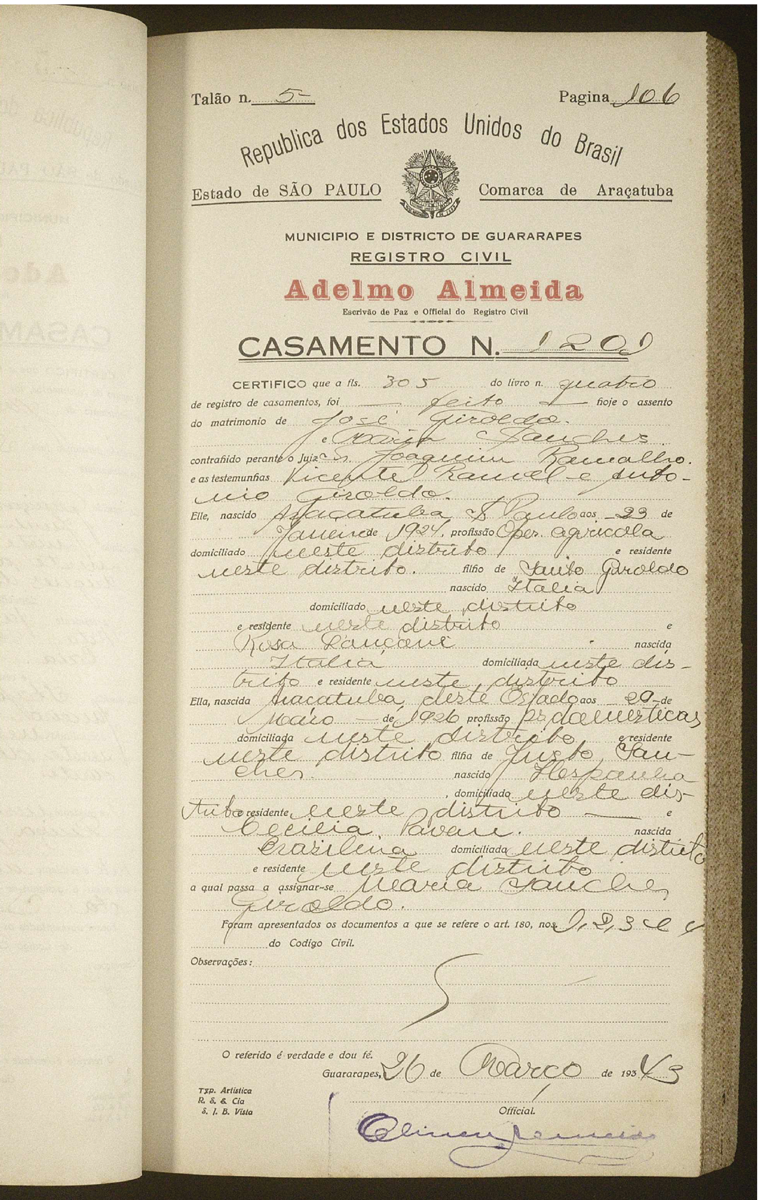 Talão n. 5- Pagina 106
Republica dos Estados Unidos do Brasil
Estado de SÃO PAULO Comarca de Araçatuba
MUNICIPIO E DISTRICTO DE GUARARAPES
REGISTRO CIVIL
Adelmo Almeida
Escrivão de Paz e Official do Registro Civil
CASAMENTO N. 1201
CERTIFICO que a fls. 305 do livro n. quatro
de registro de casamentos, foi — feito — hoje o assento
do matrimonio de José Giroldo.
e Maria Sanches
contrahido perante o Juiz Sr. Joaquim Ramalho.
e as testemunhas Vicente e Anto-
nio Giroldo.
Elle, nascido Araçatuba S. Paulo aos 23 de
Janeiro de 1924. profissão Oper. agricola
domiciliado neste distrito e residente
neste distrito. filho de Santo Giroldo
nascido Italia
domiciliado neste distrito
e residente neste distrito e
Rosa nascida
Italia domiciliada neste dis-
trito e residente neste distrito
Ella, nascida Araçatuba, deste Estado aos 20 de
de 1926 profissão Ps. domesticas
domiciliada neste distrito e residente
neste distrito filha de Justo San-
ches. nascido Hespanha
domiciliado neste dis-
trito e residente neste distrito — e
Cecilia Pavan. nascida
Brazileira domiciliada neste distrito
e residente neste distrito
a qual passa a assignar-se Maria Sanches
Giroldo.
Foram apresentados os documentos a que se refere o art. 180, nos 1, 2, 3 e 4
do Codigo Civil.
Observações:
O referido é verdade e dou fé.
Guararapes, 26 de Março de 1943
Typ. Artistica
R. S. & Cia
S. J. B. Vista
Official.